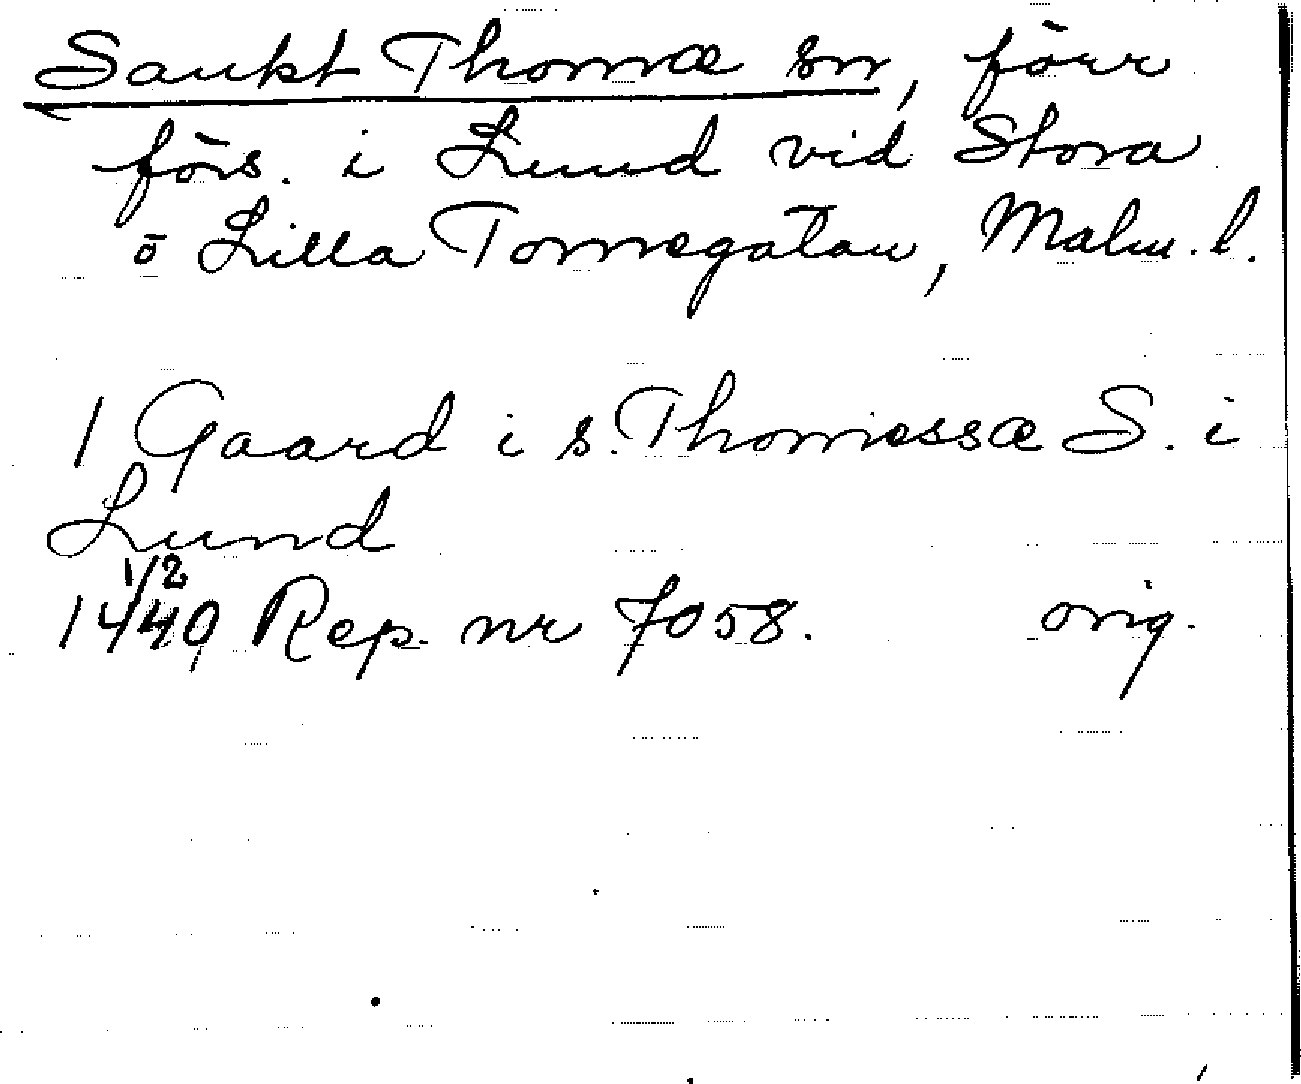 Sankt Thomæ sn, förr
förs. i Lund vid Stora
o Lilla Tomegatan, Malm. l.
1 Gaard i s. Thomessæ S. i
Lund
1/2
1440 Rep. nr 7058. orig.